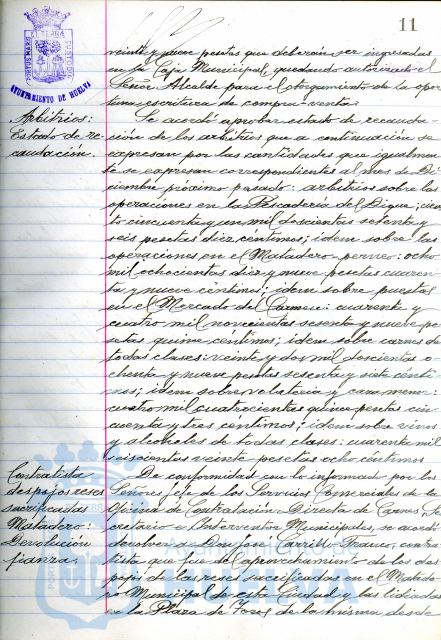 11
PORTUS MARIS ET TERRAE CUSTODIA
AYUNTAMIENTO DE HUELVA
veinte y nueve pesetas que deberán ser ingresadas
en la Caja Municipal, quedando autorizado el
Señor Alcalde para el otorgamiento de la opor
tuna escritura de compra-venta.
Arbitrios:
Estado de re
caudación.
Se acordó aprobar estado de recauda
ción de los arbitrios que a continuación se
expresan por las cantidades que igualmen
te se expresan correspondientes al mes de Di
ciembre próximo pasado: arbitrios sobre las
operaciones en la Pescadería del Dique; cien
to cincuenta y un mil doscientas setenta y
seis pesetas diez céntimos; idem sobre las
operaciones en el Matadero: ocho
mil ochocientas diez y nueve pesetas cuaren
ta y nueve céntimos; idem sobre puestos
en el Mercado del Carmen: cuarenta y
cuatro mil novecientas sesenta y nueve pe
setas quince céntimos; idem sobre carnes de
todas clases: veinte y dos mil doscientas o
chenta y nueve pesetas sesenta y siete cénti
mos; idem sobre volatería y caza menor:
cuatro mil cuatrocientas quince pesetas cin
cuenta y tres céntimos; idem sobre vinos
y alcoholes de todas clases: cuarenta mil
seiscientas veinte pesetas ocho céntimos
Contratista
despojos reses
sacrificadas
Matadero:
Devolución
fianza.
De conformidad con lo informado por los
Señores Jefe de los Servicios Comerciales de la
Oficina de Contratación, Director de Carnes, Se
cretario e Interventor Municipales, se acordó
devolver a Don José Franco, contra
tista que fue del aprovechamiento de los des
pojos de las reses sacrificadas en el Matade
ro Municipal de esta Ciudad y las lidiadas
en la Plaza de Toros de la misma desde
Ayuntamiento de
HUELVA